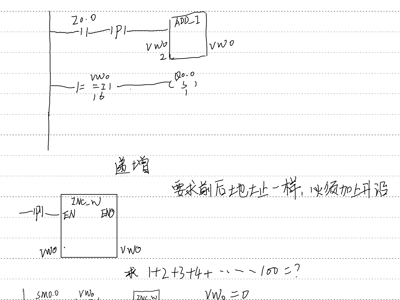 I0.0
|P|
ADD_I
VW0
VW0
2
VW0
==I
16
Q0.0
( S )
1
递增
要求前后地址一样，必须加上升沿
|P|
INC_W
EN ENO
VW0 VW0
求 1+2+3+4+ ······100=?
SM0.0 VW0 INC_W VW0=0